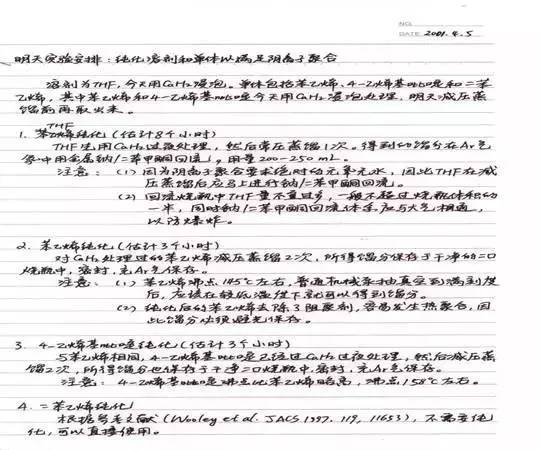 NO.
DATE 2001.4.5
明天实验安排:纯化溶剂和单体以满足阴离子聚合
溶剂为THF,今天用CaH₂浸泡。单体包括苯乙烯、4-乙烯基吡啶和二苯
乙烯,其中苯乙烯和4-乙烯基吡啶是今天用CaH₂浸泡处理,明天减压蒸
馏前再取出来。
1. THF纯化(估计8个小时)
THF先用CaH₂过夜处理,然后常压蒸馏1次。得到的馏分在Ar气
氛中用金属钠/二苯甲酮回流,用量200-250 mL。
注意:(1) 因为阴离子聚合要求绝对的无氧无水,因此THF在减
压蒸馏后应马上进行钠/二苯甲酮回流。
(2) 回流烧瓶中THF量不宜过多,一般不超过烧瓶体积的
一半,同时钠/二苯甲酮回流体系应与大气相通,
以防爆炸。
2. 苯乙烯纯化(估计3个小时)
对CaH₂处理过的苯乙烯减压蒸馏2次,所得馏分保存于干净的二口
烧瓶中,密封,充Ar气保存。
注意:(1) 苯乙烯沸点145℃左右,普通机械泵抽真空到满刻度
后,应该在较低温度下就可以得到馏分。
(2) 纯化后的苯乙烯去除了阻聚剂,容易发生热聚合,因
此馏分必须避光保存。
3. 4-乙烯基吡啶纯化(估计3个小时)
与苯乙烯相同,4-乙烯基吡啶已经过CaH₂过夜处理,然后减压蒸
馏2次,所得馏分也保存于干净二口烧瓶中,密封,充Ar气保存。
注意:4-乙烯基吡啶沸点比苯乙烯略高,沸点158℃左右。
4. 二苯乙烯纯化
根据参考文献(Wooley et al. JACS 1997, 119, 11653),不需要纯
化,可以直接使用。